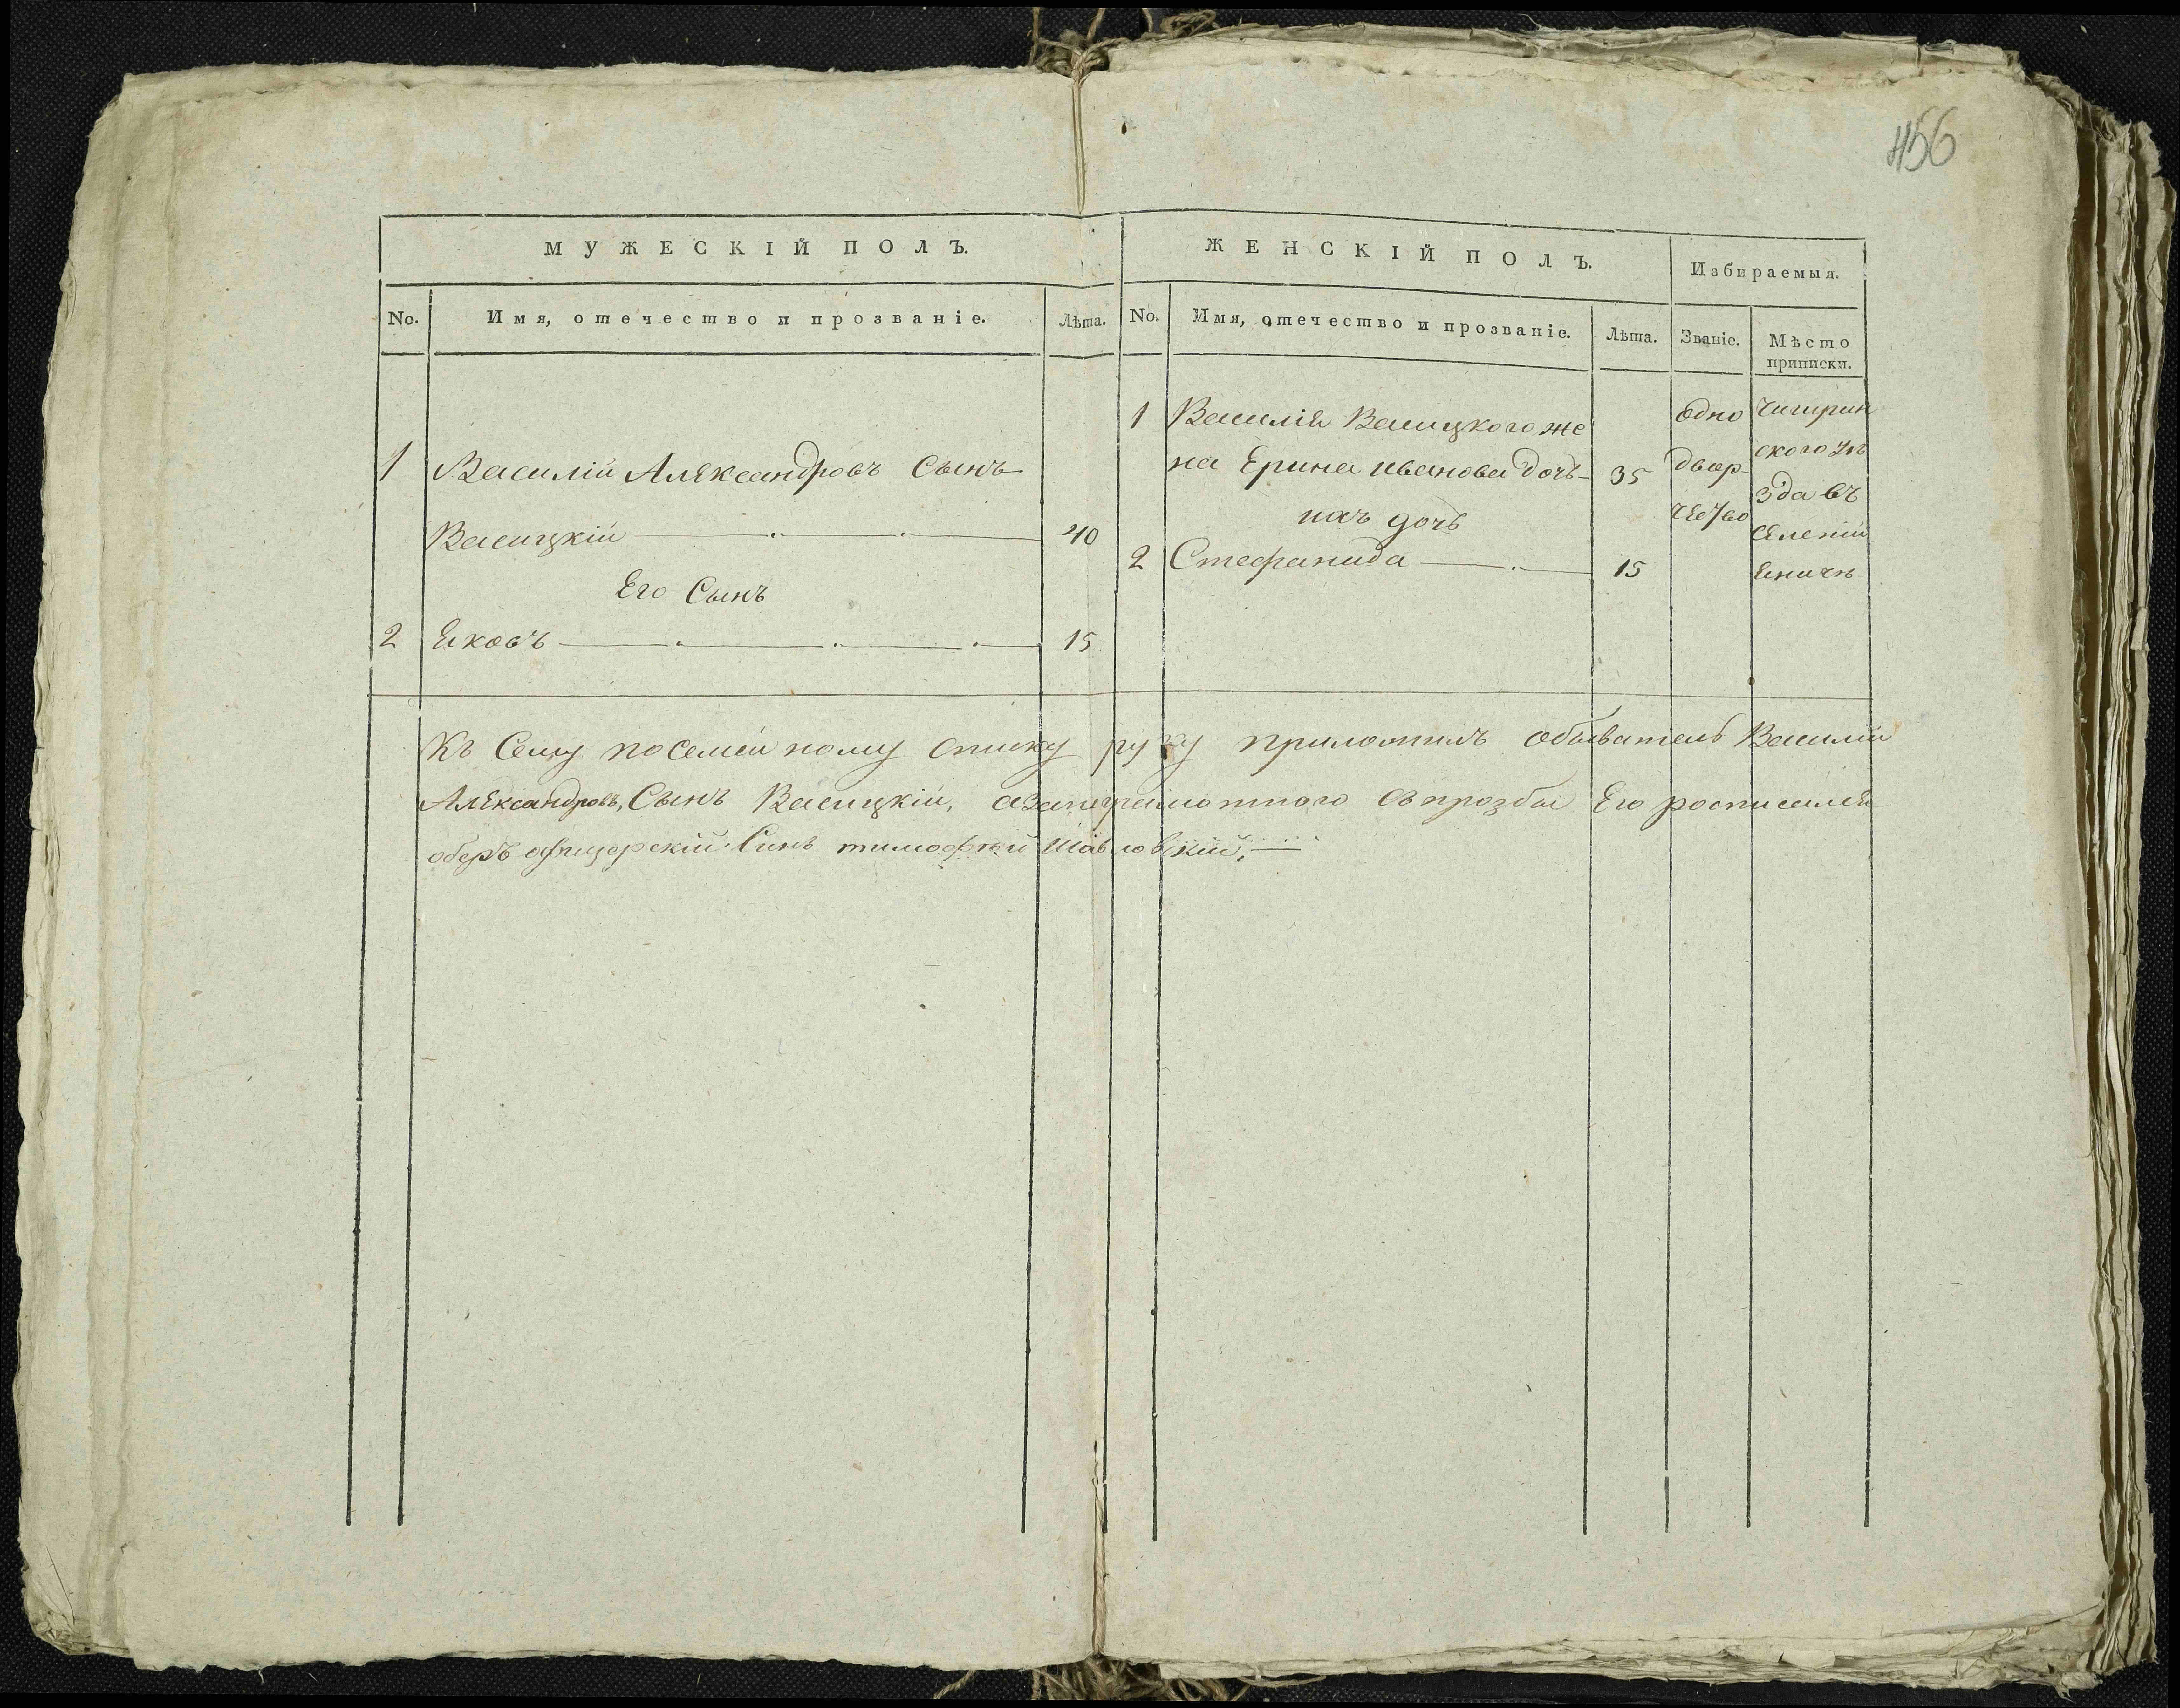 456
МУЖЕСКІЙ ПОЛЪ.
No. Имя, отечество и прозваніе. Лѣта.
1 Василій Александровъ Сынъ
Васицкій 40
Его Сынъ
2 Яковъ 15
ЖЕНСКІЙ ПОЛЪ. Избираемыя.
No. Имя, отечество и прозваніе. Лѣта. Званіе. Мѣсто
приписки.
1 Василія Васицкого же
на Ерина иванова дочь 35
ихъ дочь
2 Стефанида 15
одно
двор
Чигирин
ского уѣ
зда въ
селеніи
Къ Сему посемейному списку руку приложилъ обыватель Василій
Александровъ, Сынъ Васицкій, а за неграмотного съ прозбы Его росписался
оберъ офицерскій Синъ тимофей